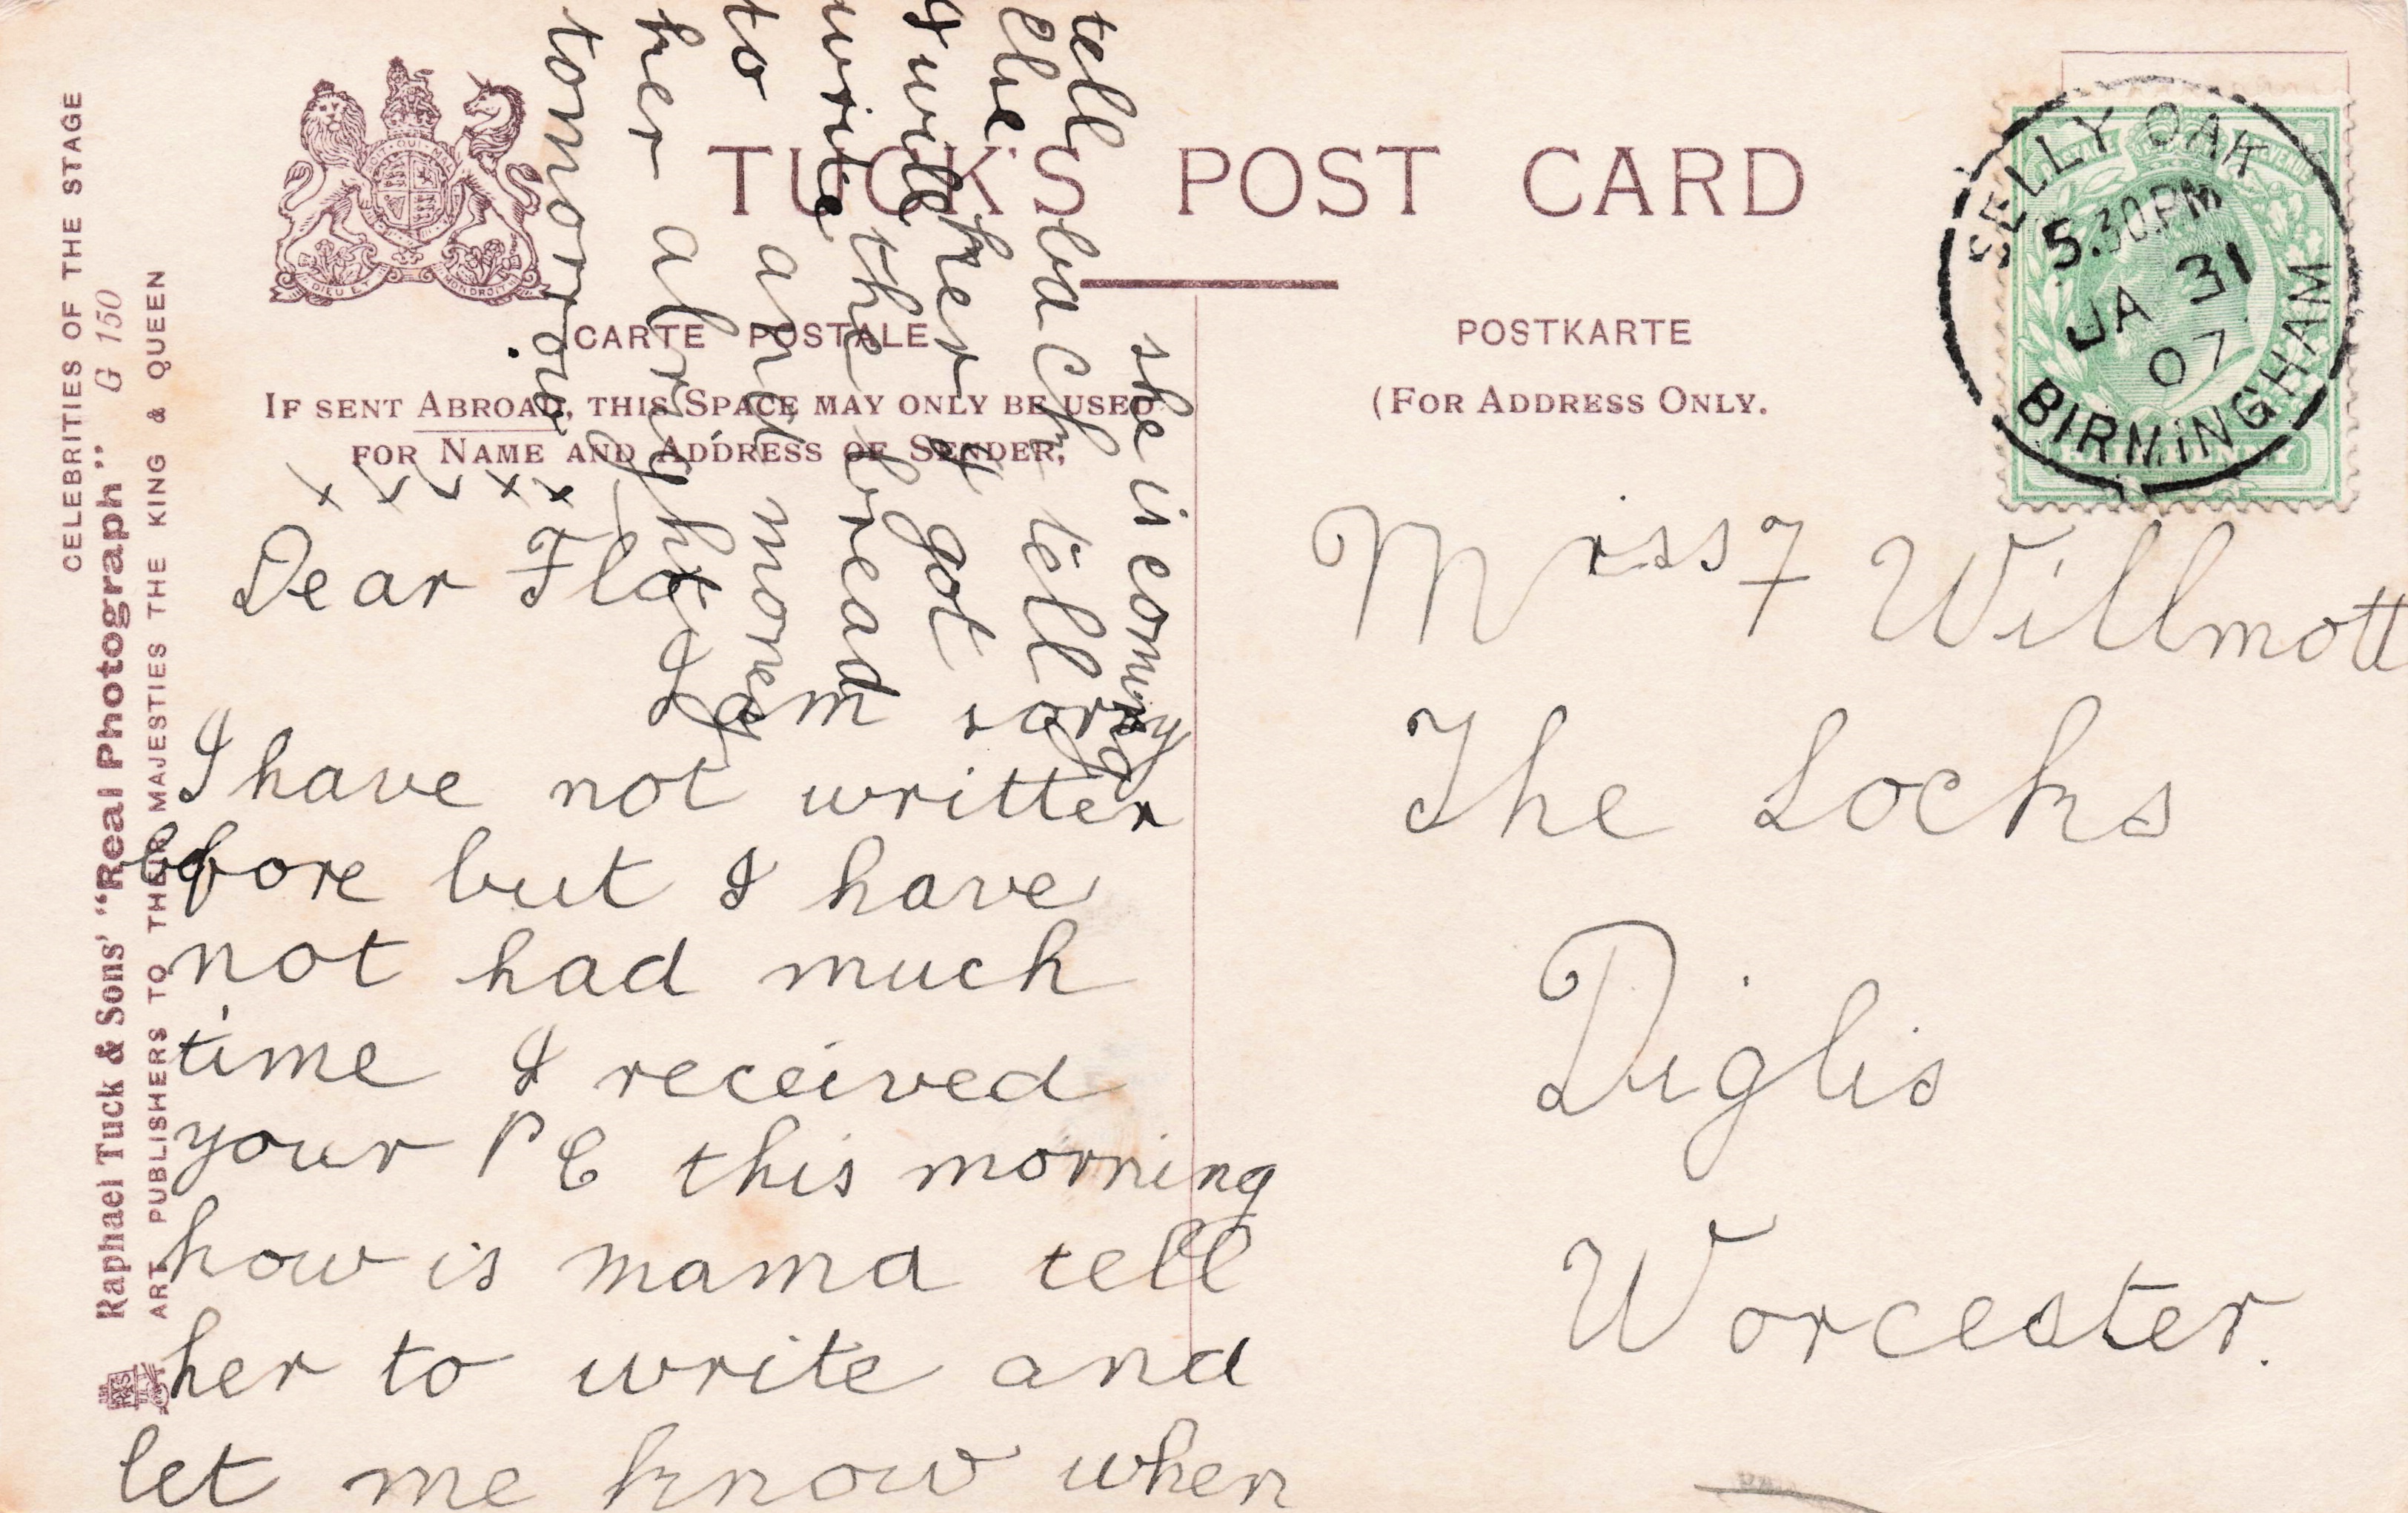 CELEBRITIES OF THE STAGE
Raphael Tuck & Sons' "Real Photograph" G 150
ART PUBLISHERS TO THEIR MAJESTIES THE KING & QUEEN
TUCK'S POST CARD
CARTE POSTALE
IF SENT ABROAD, THIS SPACE MAY ONLY BE USED
FOR NAME AND ADDRESS OF SENDER,
POSTKARTE
(FOR ADDRESS ONLY.
SELLY OAK
5.30PM
JA 31
07
BIRMINGHAM
HALFPENNY
DIEU ET MON DROIT
x x x x x
Dear Flo
I am sorry
I have not written
before but I have
not had much
time I received
your P C this morning
how is mama tell
her to write and
let me know when
she is coming
bach tell
her I got
the bread
and money
alright
tell
I will
write
to
her
tomorrow.
Miss F Willmott
The Locks
Diglis
Worcester.